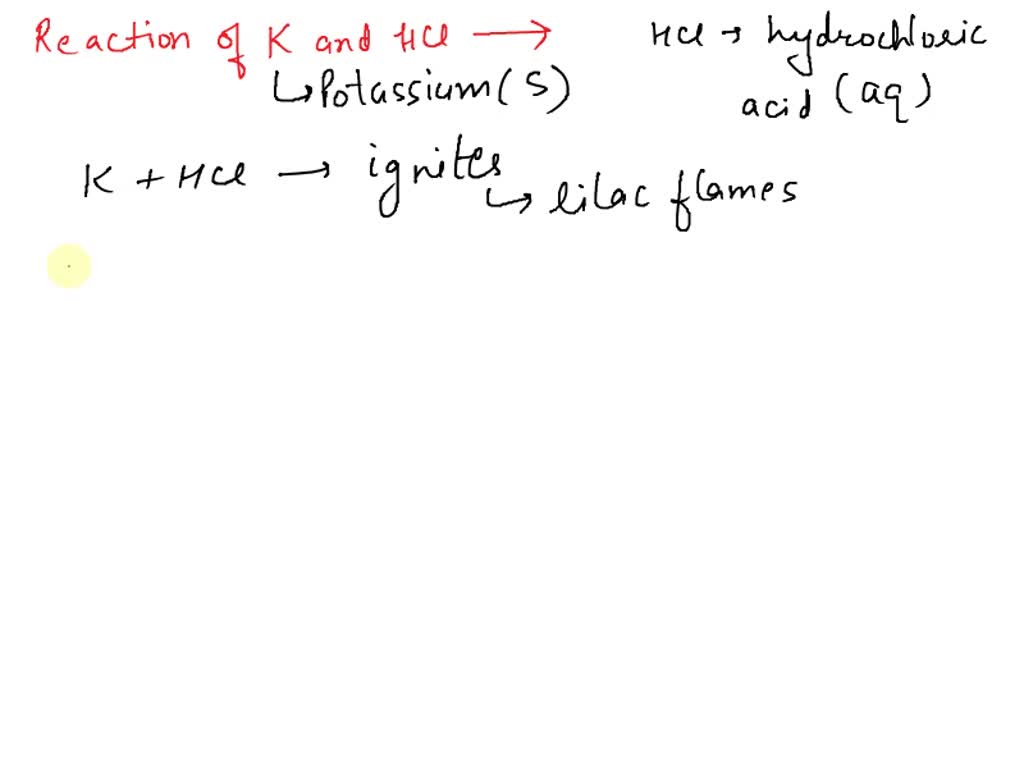 Reaction of K and HCl →
↳ Potassium (S)
HCl → hydrochloric
acid (aq)
K + HCl → ignites
↳ lilac flames